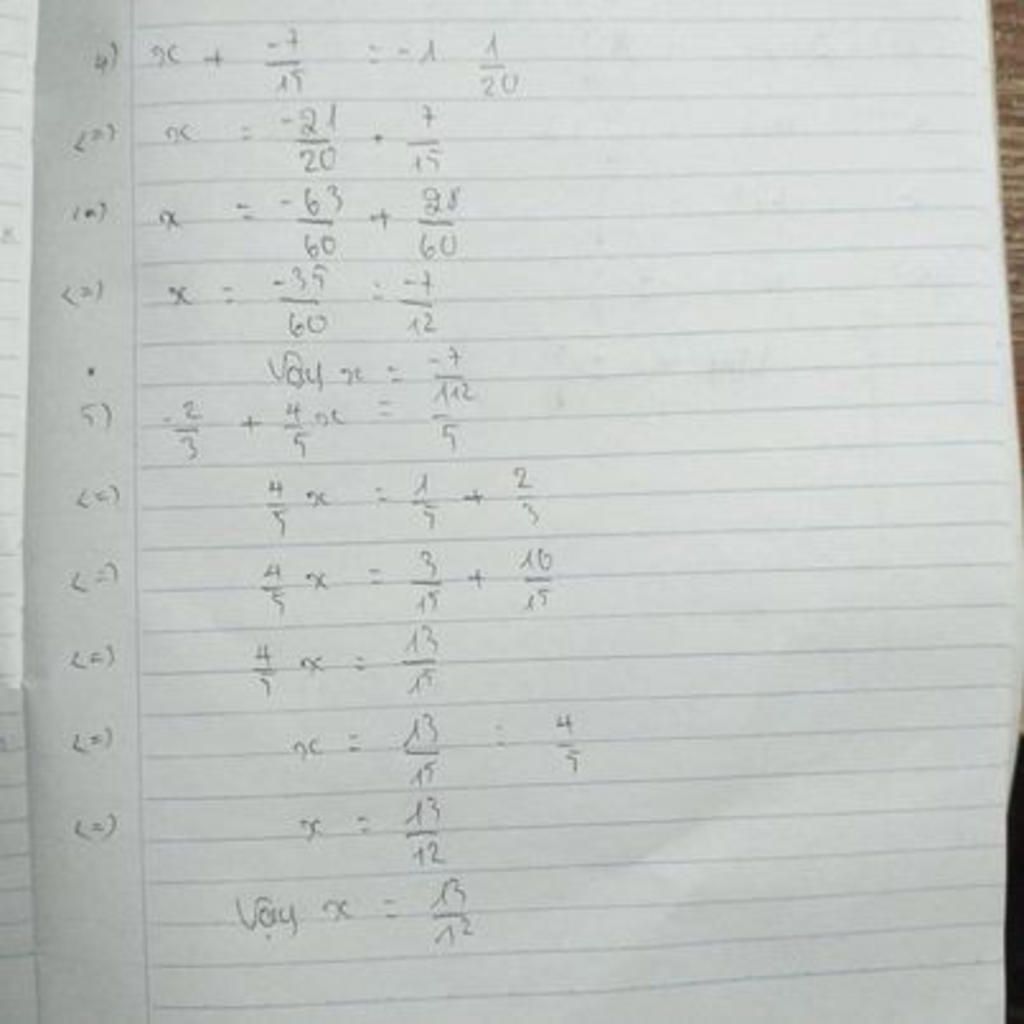 4) x + -7/15 = -1 1/20
<=> x = -21/20 + 7/15
<=> x = -63/60 + 28/60
<=> x = -35/60 = -7/12
Vậy x = -7/12
5) -2/3 + 4/5 x = 1/5
<=> 4/5 x = 1/5 + 2/3
<=> 4/5 x = 3/15 + 10/15
<=> 4/5 x = 13/15
<=> x = 13/15 : 4/5
<=> x = 13/12
Vậy x = 13/12